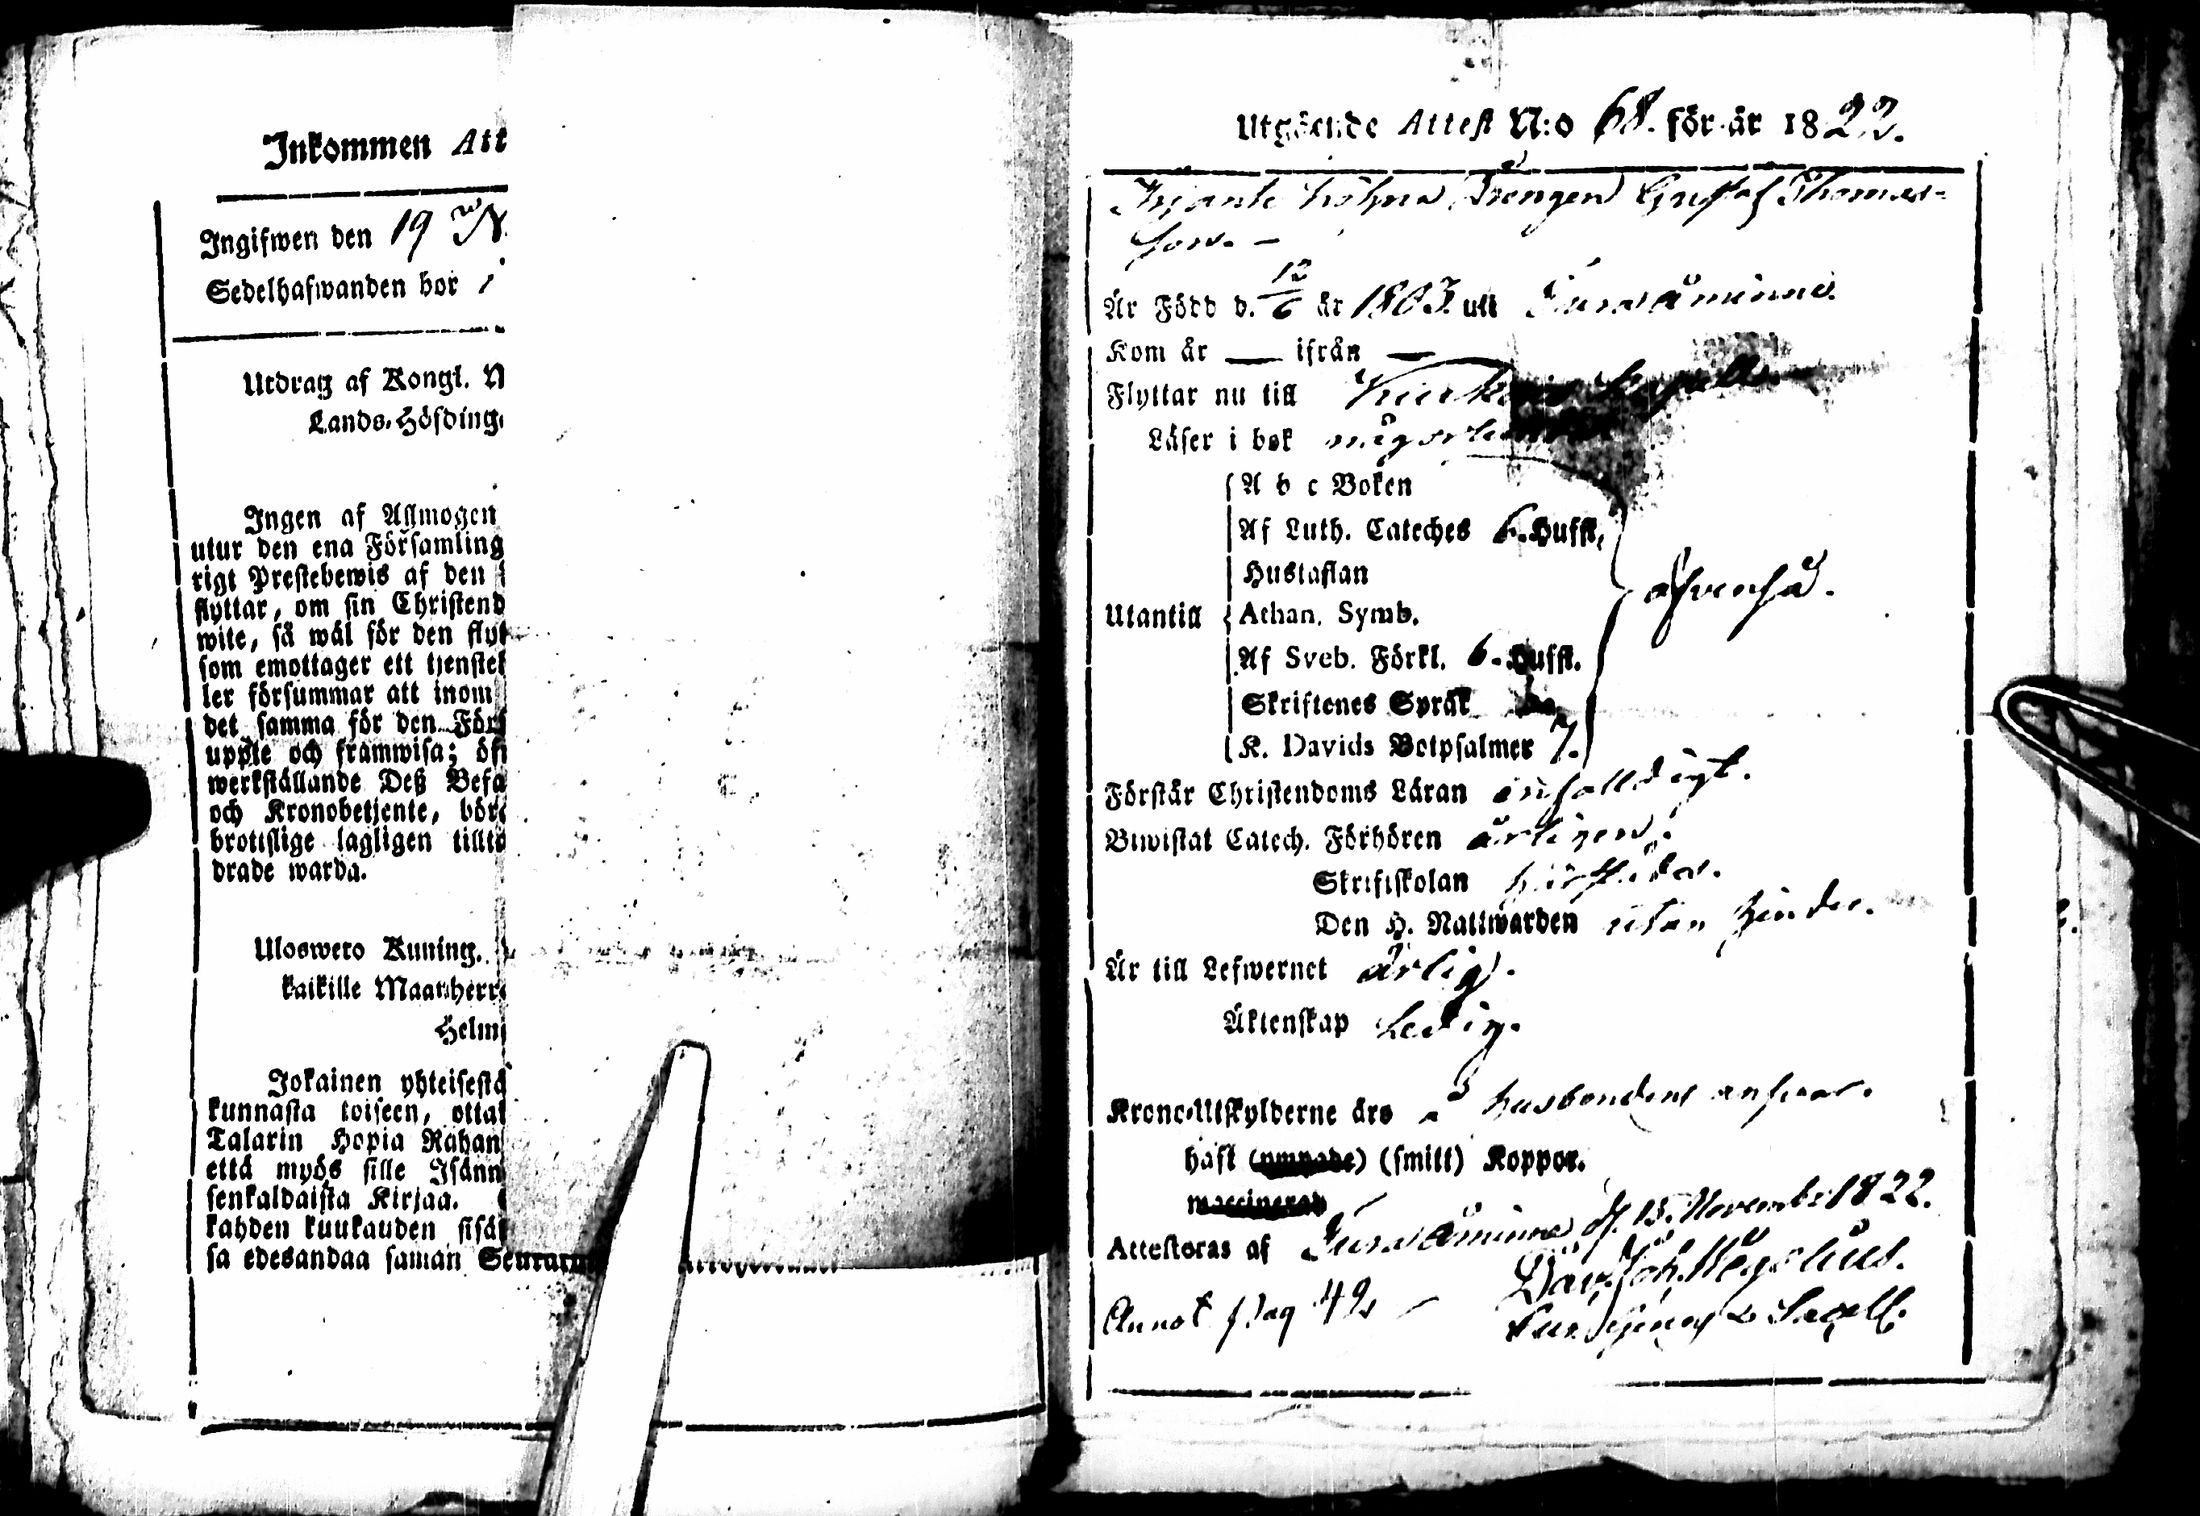 Inkommen Att
Ingifwen den 19 N
Sedelhafwanden bor i
Utdrag af Kongl.
Lands-Höfding
Ingen af Allmogen
utur den ena Församling
rigt Prestebewis af den
flyttar, om sin Christend
wite, så wäl för den flyt
som emottager ett tjenste
ler försummar att inom
det samma för den För
upple och framwisa; öf
werkställande Deß Befa
och Kronobetjente, bör
brottslige lagligen tillta
drade warda.
Uloswero Kuning.
kaikille Maanherr
Helm
Jokainen yhteisestä
kunnasta toiseen, ottai
Talarin Hopia Rahan
että myös sille Isänn
senkaldaista Kirjaa.
kahden kuukauden sisä
sa edesandaa saman
Utgående Attest N:o 68. för år 1822.
Drengen Gustaf Thomas-
son. -
Är Född d. 12/6 år 1803. uti Sumäminne.
Kom år — ifrån —
Flyttar nu till
Läser i bok någorlunda
A b c Boken
Af Luth. Cateches 6. Hufst.
Hustaflan
Utantill Athan. Symb.
äfvenså.
Af Sveb. Förkl. 6. Hufst.
Skriftenes Språk
K. Davids Botpsalmer 7.
Förstår Christendoms Läran enfalldigt.
Biwistat Catech. Förhören årligen.
Skriftskolan
Den H. Nattwarden utan hinder.
Är till Lefwernet ärlig.
Äktenskap Ledig.
Krono-Utskylderne äro å husbondens ansvar.
haft (ympade) (smitt) Koppor.
vaccinerad
Attesteras af d. 15. November 1822.
Dav. Joh.
Annot pag 49